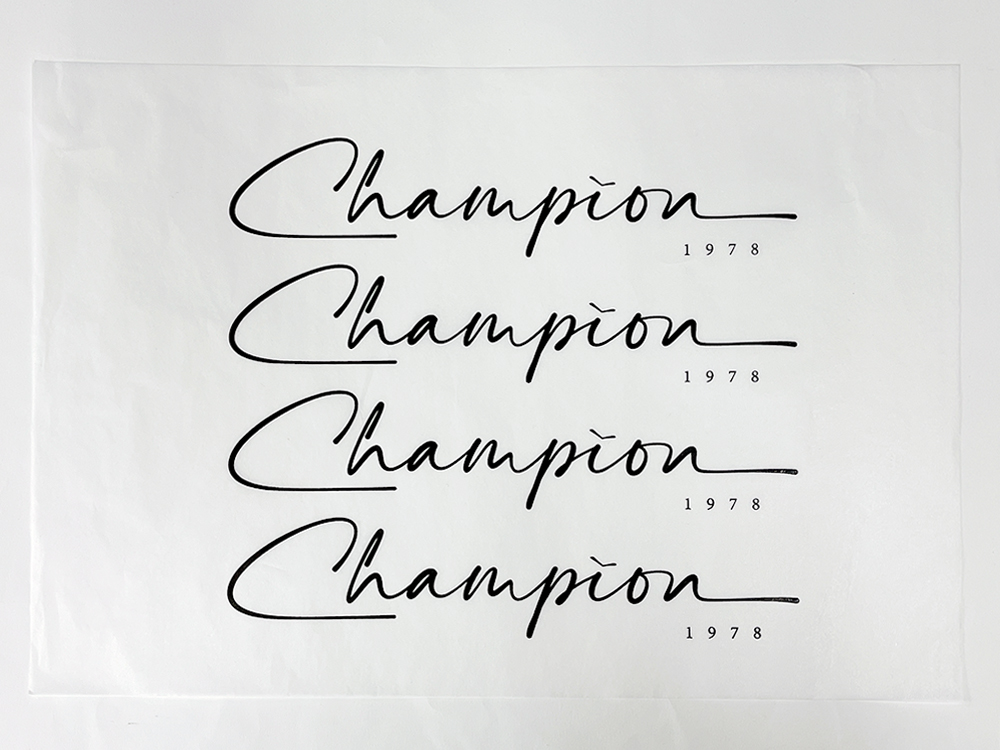 Champion
1978
Champion
1978
Champion
1978
Champion
1978